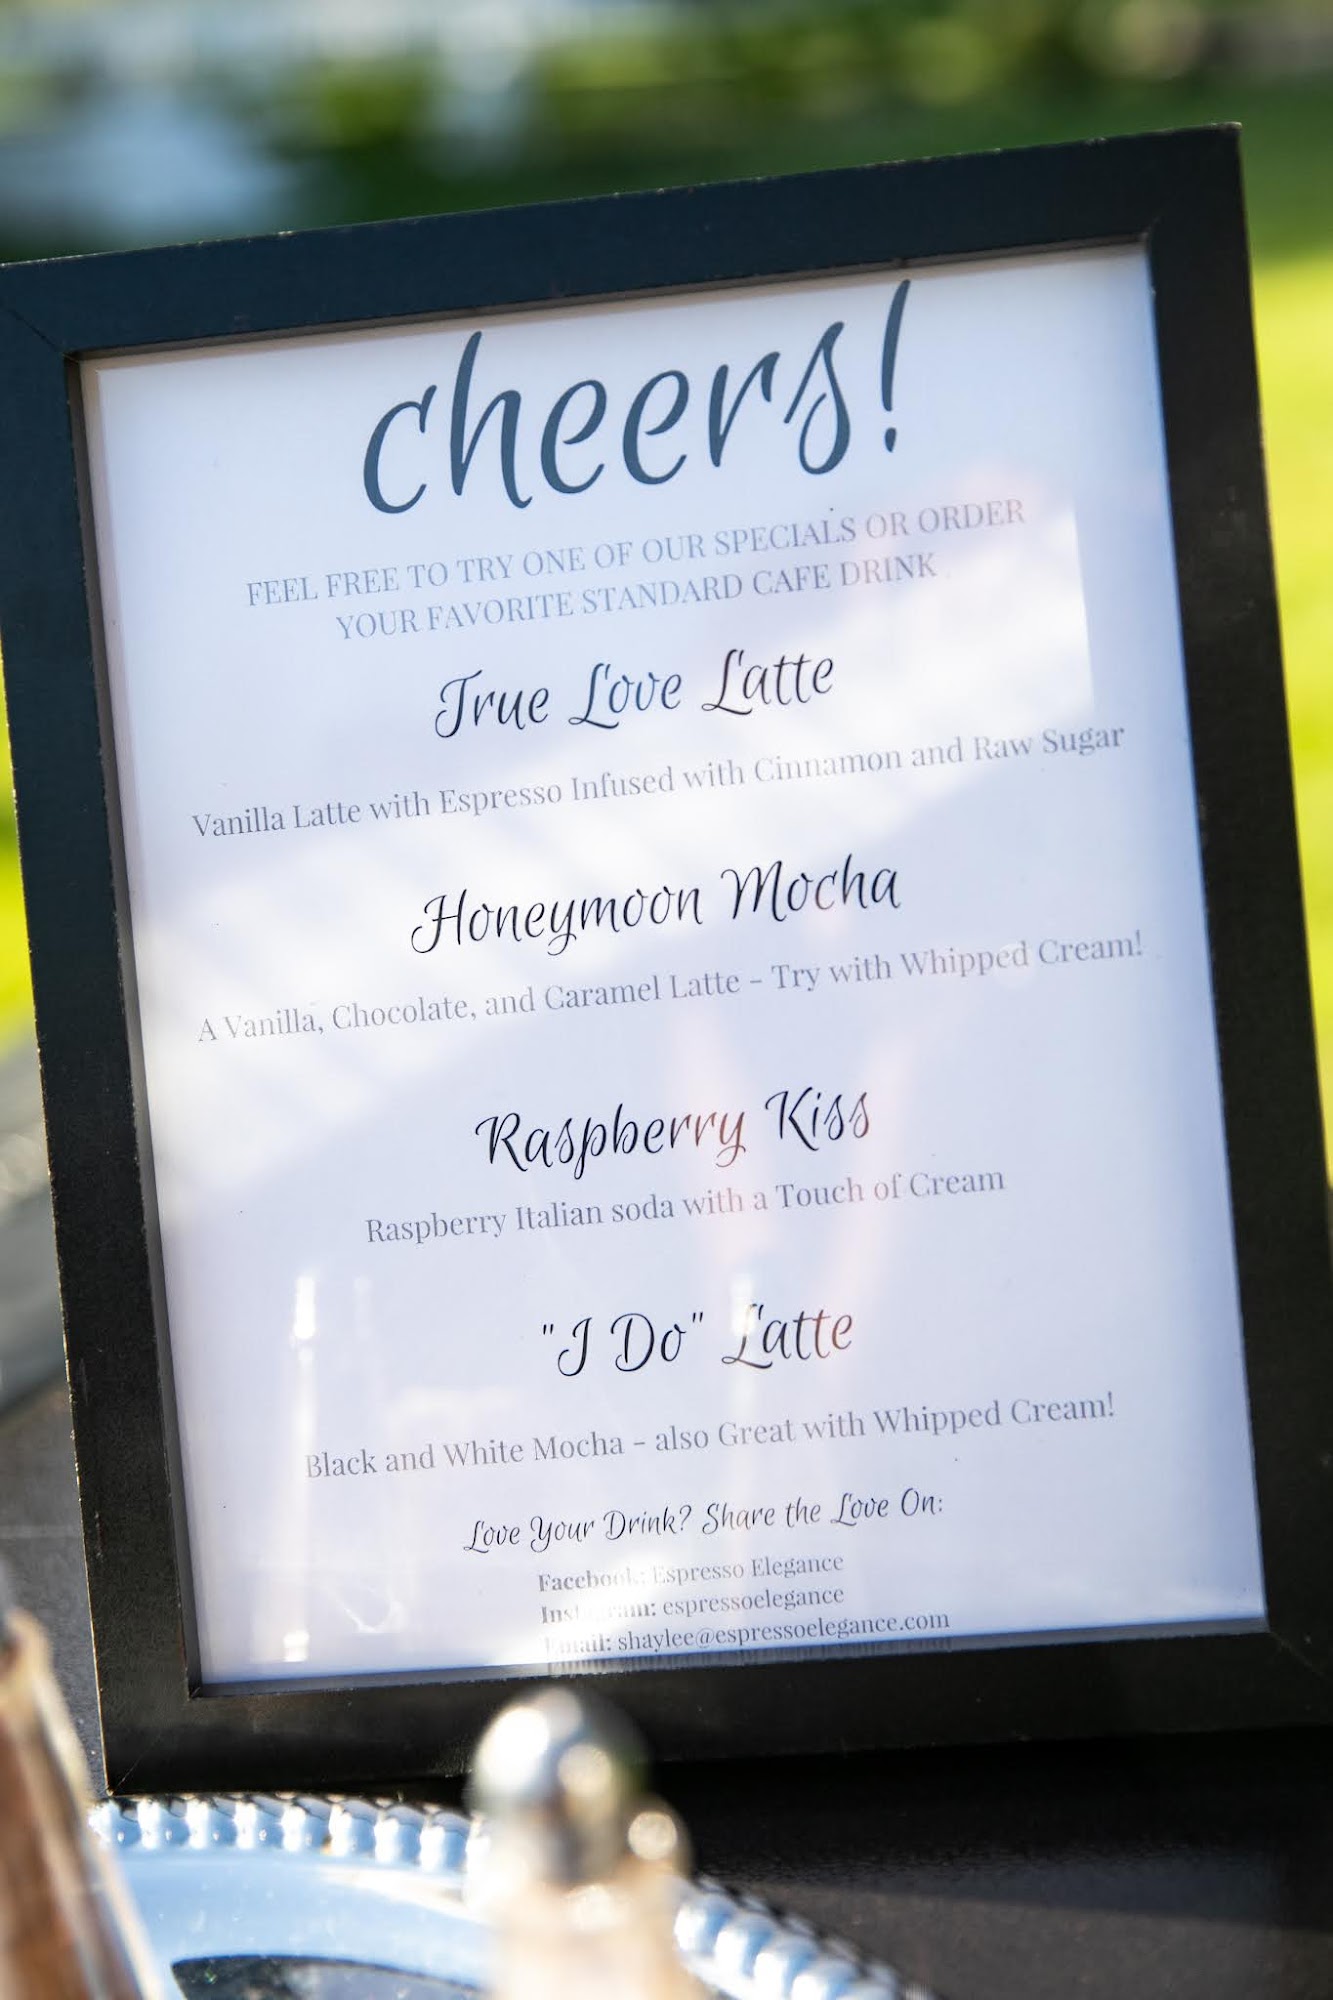 cheers!
FEEL FREE TO TRY ONE OF OUR SPECIALS OR ORDER
YOUR FAVORITE STANDARD CAFE DRINK
True Love Latte
Vanilla Latte with Espresso Infused with Cinnamon and Raw Sugar
Honeymoon Mocha
A Vanilla, Chocolate, and Caramel Latte - Try with Whipped Cream!
Raspberry Kiss
Raspberry Italian soda with a Touch of Cream
"I Do" Latte
Black and White Mocha - also Great with Whipped Cream!
Love Your Drink? Share the Love On:
Facebook: Espresso Elegance
Instagram: espressoelegance
Email: shaylee@espressoelegance.com